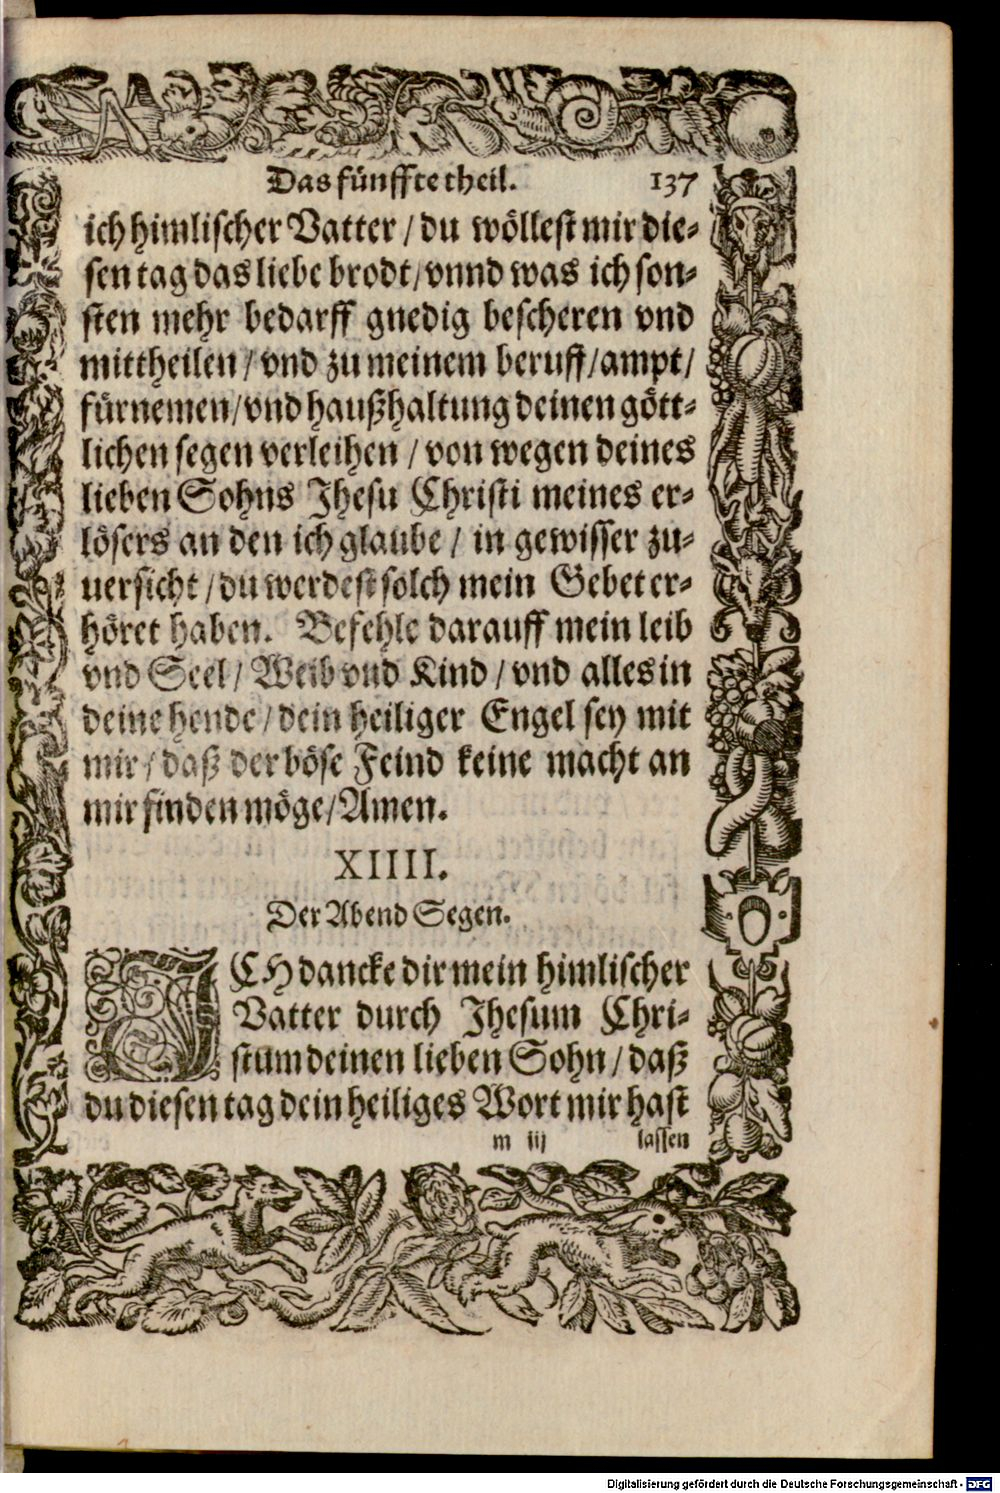 Das fünffte theil. 137
ich himlischer Vatter / du wöllest mir die-
sen tag das liebe brodt / vnnd was ich son-
sten mehr bedarff gnedig bescheren vnd
mittheilen / vnd zu meinem beruff / ampt /
fürnemen / vnd haußhaltung deinen gött-
lichen segen verleihen / von wegen deines
lieben Sohns Jhesu Christi meines er-
lösers an den ich glaube / in gewisser zu-
uersicht / du werdest solch mein Gebet er-
höret haben. Befehle darauff mein leib
vnd Seel / Weib vnd Kind / vnd alles in
deine hende / dein heiliger Engel sey mit
mir / daß der böse Feind keine macht an
mir finden möge / Amen.
XIIII.
Der Abend Segen.
ICH dancke dir mein himlischer
Vatter durch Jhesum Chri-
stum deinen lieben Sohn / daß
du diesen tag dein heiliges Wort mir hast
m iij lassen
Digitalisierung gefördert durch die Deutsche Forschungsgemeinschaft - DFG